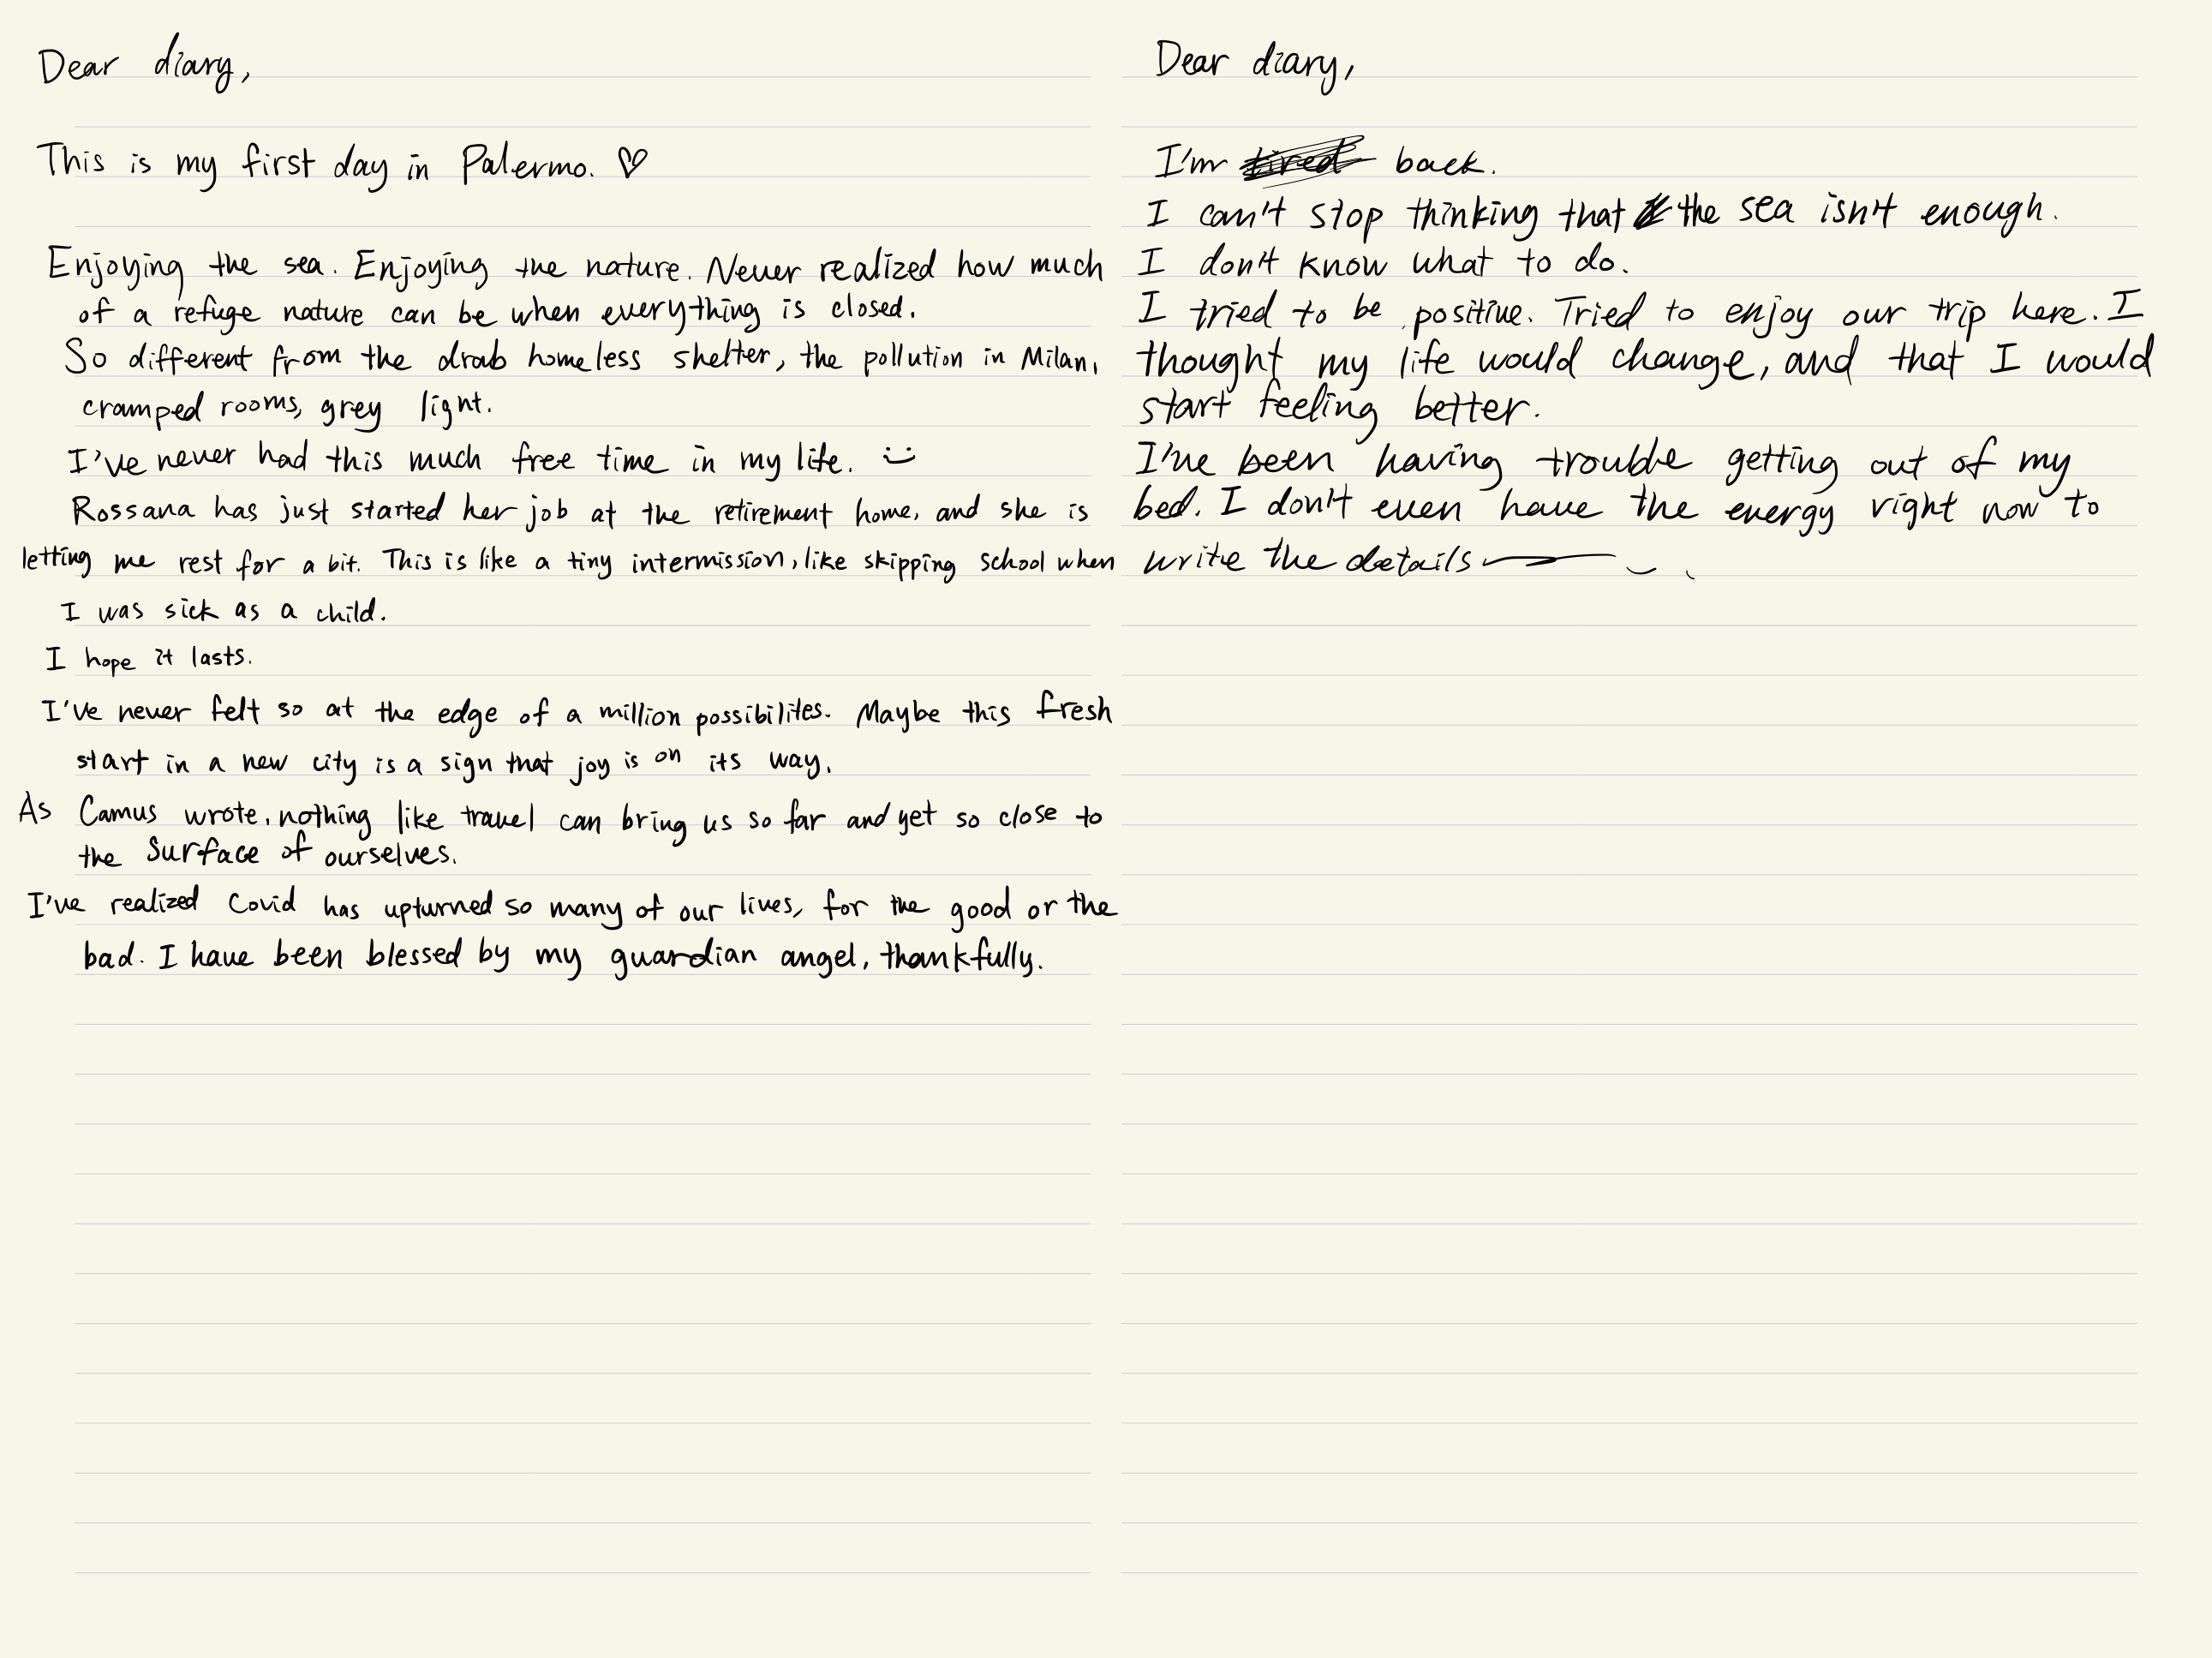 Dear diary,
This is my first day in Palermo. ♡
Enjoying the sea. Enjoying the nature. Never realized how much
of a refuge nature can be when everything is closed.
So different from the drab homeless shelter, the pollution in Milan,
cramped rooms, grey light.
I've never had this much free time in my life. :)
Rossana has just started her job at the retirement home, and she is
letting me rest for a bit. This is like a tiny intermission, like skipping school when
I was sick as a child.
I hope it lasts.
I've never felt so at the edge of a million possibilites. Maybe this fresh
start in a new city is a sign that joy is on its way.
As Camus wrote, nothing like travel can bring us so far and yet so close to
the surface of ourselves.
I've realized Covid has upturned so many of our lives, for the good or the
bad. I have been blessed by my guardian angel, thankfully.
Dear diary,
I'm tired back.
I can't stop thinking that the sea isn't enough.
I don't know what to do.
I tried to be positive. Tried to enjoy our trip here. I
thought my life would change, and that I would
start feeling better.
I've been having trouble getting out of my
bed. I don't even have the energy right now to
write the details